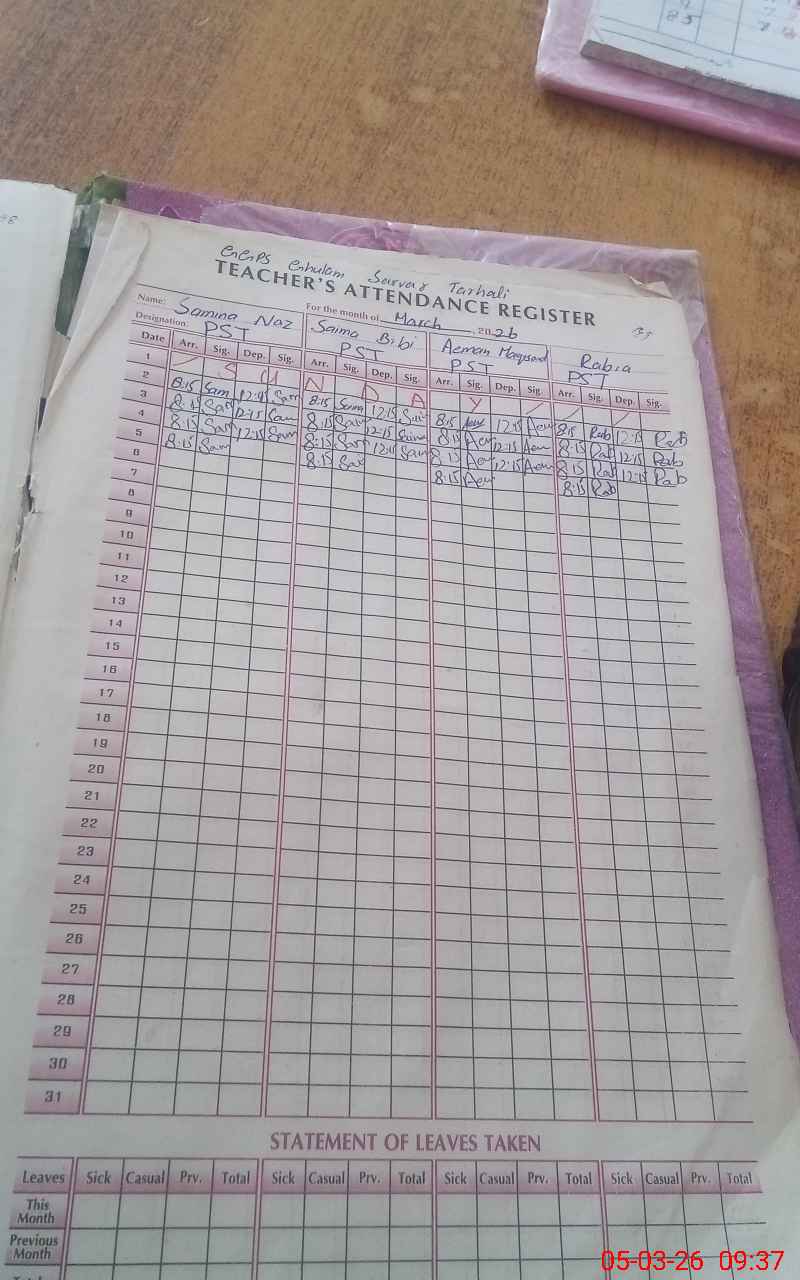 GGPS Ghulam Sarvar Tarhali
TEACHER'S ATTENDANCE REGISTER
Name: Samina Naz For the month of March 2026
Designation: PST Saima Bibi PST Aeman Maqsood PST Rabia PST
Date Arr. Sig. Dep. Sig. Arr. Sig. Dep. Sig. Arr. Sig. Dep. Sig. Arr. Sig. Dep. Sig.
1 S U N D A Y
2 8:15 Sam 12:15 Sam 8:15 Saima 12:15 Sai 8:15 Aem 12:15 Aem 8:15 Rab 12:15 Rab
3 8:15 Sam 12:15 Sam 8:15 Sai 12:15 Saima 8:15 Aem 12:15 Aem 8:15 Rab 12:15 Rab
4 8:15 Sam 12:15 Sam 8:15 Sai 12:15 Sai 8:15 Aem 12:15 Aem 8:15 Rab 12:15 Rab
5 8:15 Sam 8:15 Sai 8:15 Aem 8:15 Rab
6
7
8
9
10
11
12
13
14
15
16
17
18
19
20
21
22
23
24
25
26
27
28
29
30
31
STATEMENT OF LEAVES TAKEN
Leaves Sick Casual Prv. Total Sick Casual Prv. Total Sick Casual Prv. Total Sick Casual Prv. Total
This Month
Previous Month
05-03-26 09:37